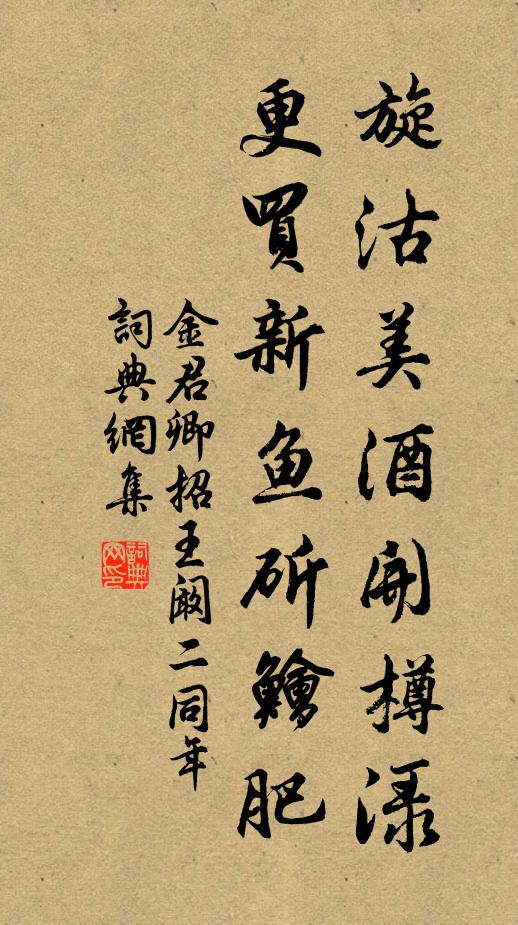 旋沽美酒開樽渌
更買新鱼斫鱠肥
金君卿招王闞二同年
詞典網集
詞典网印